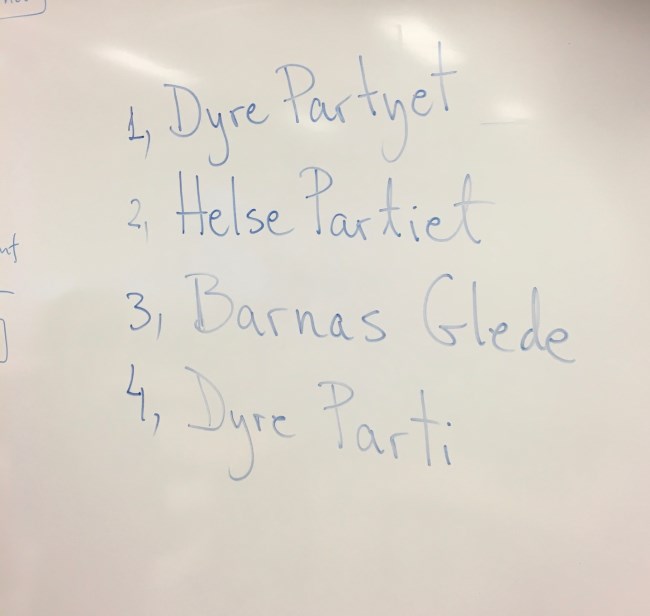 1, Dyre Partyet
2, Helse Partiet
3, Barnas Glede
4, Dyre Parti